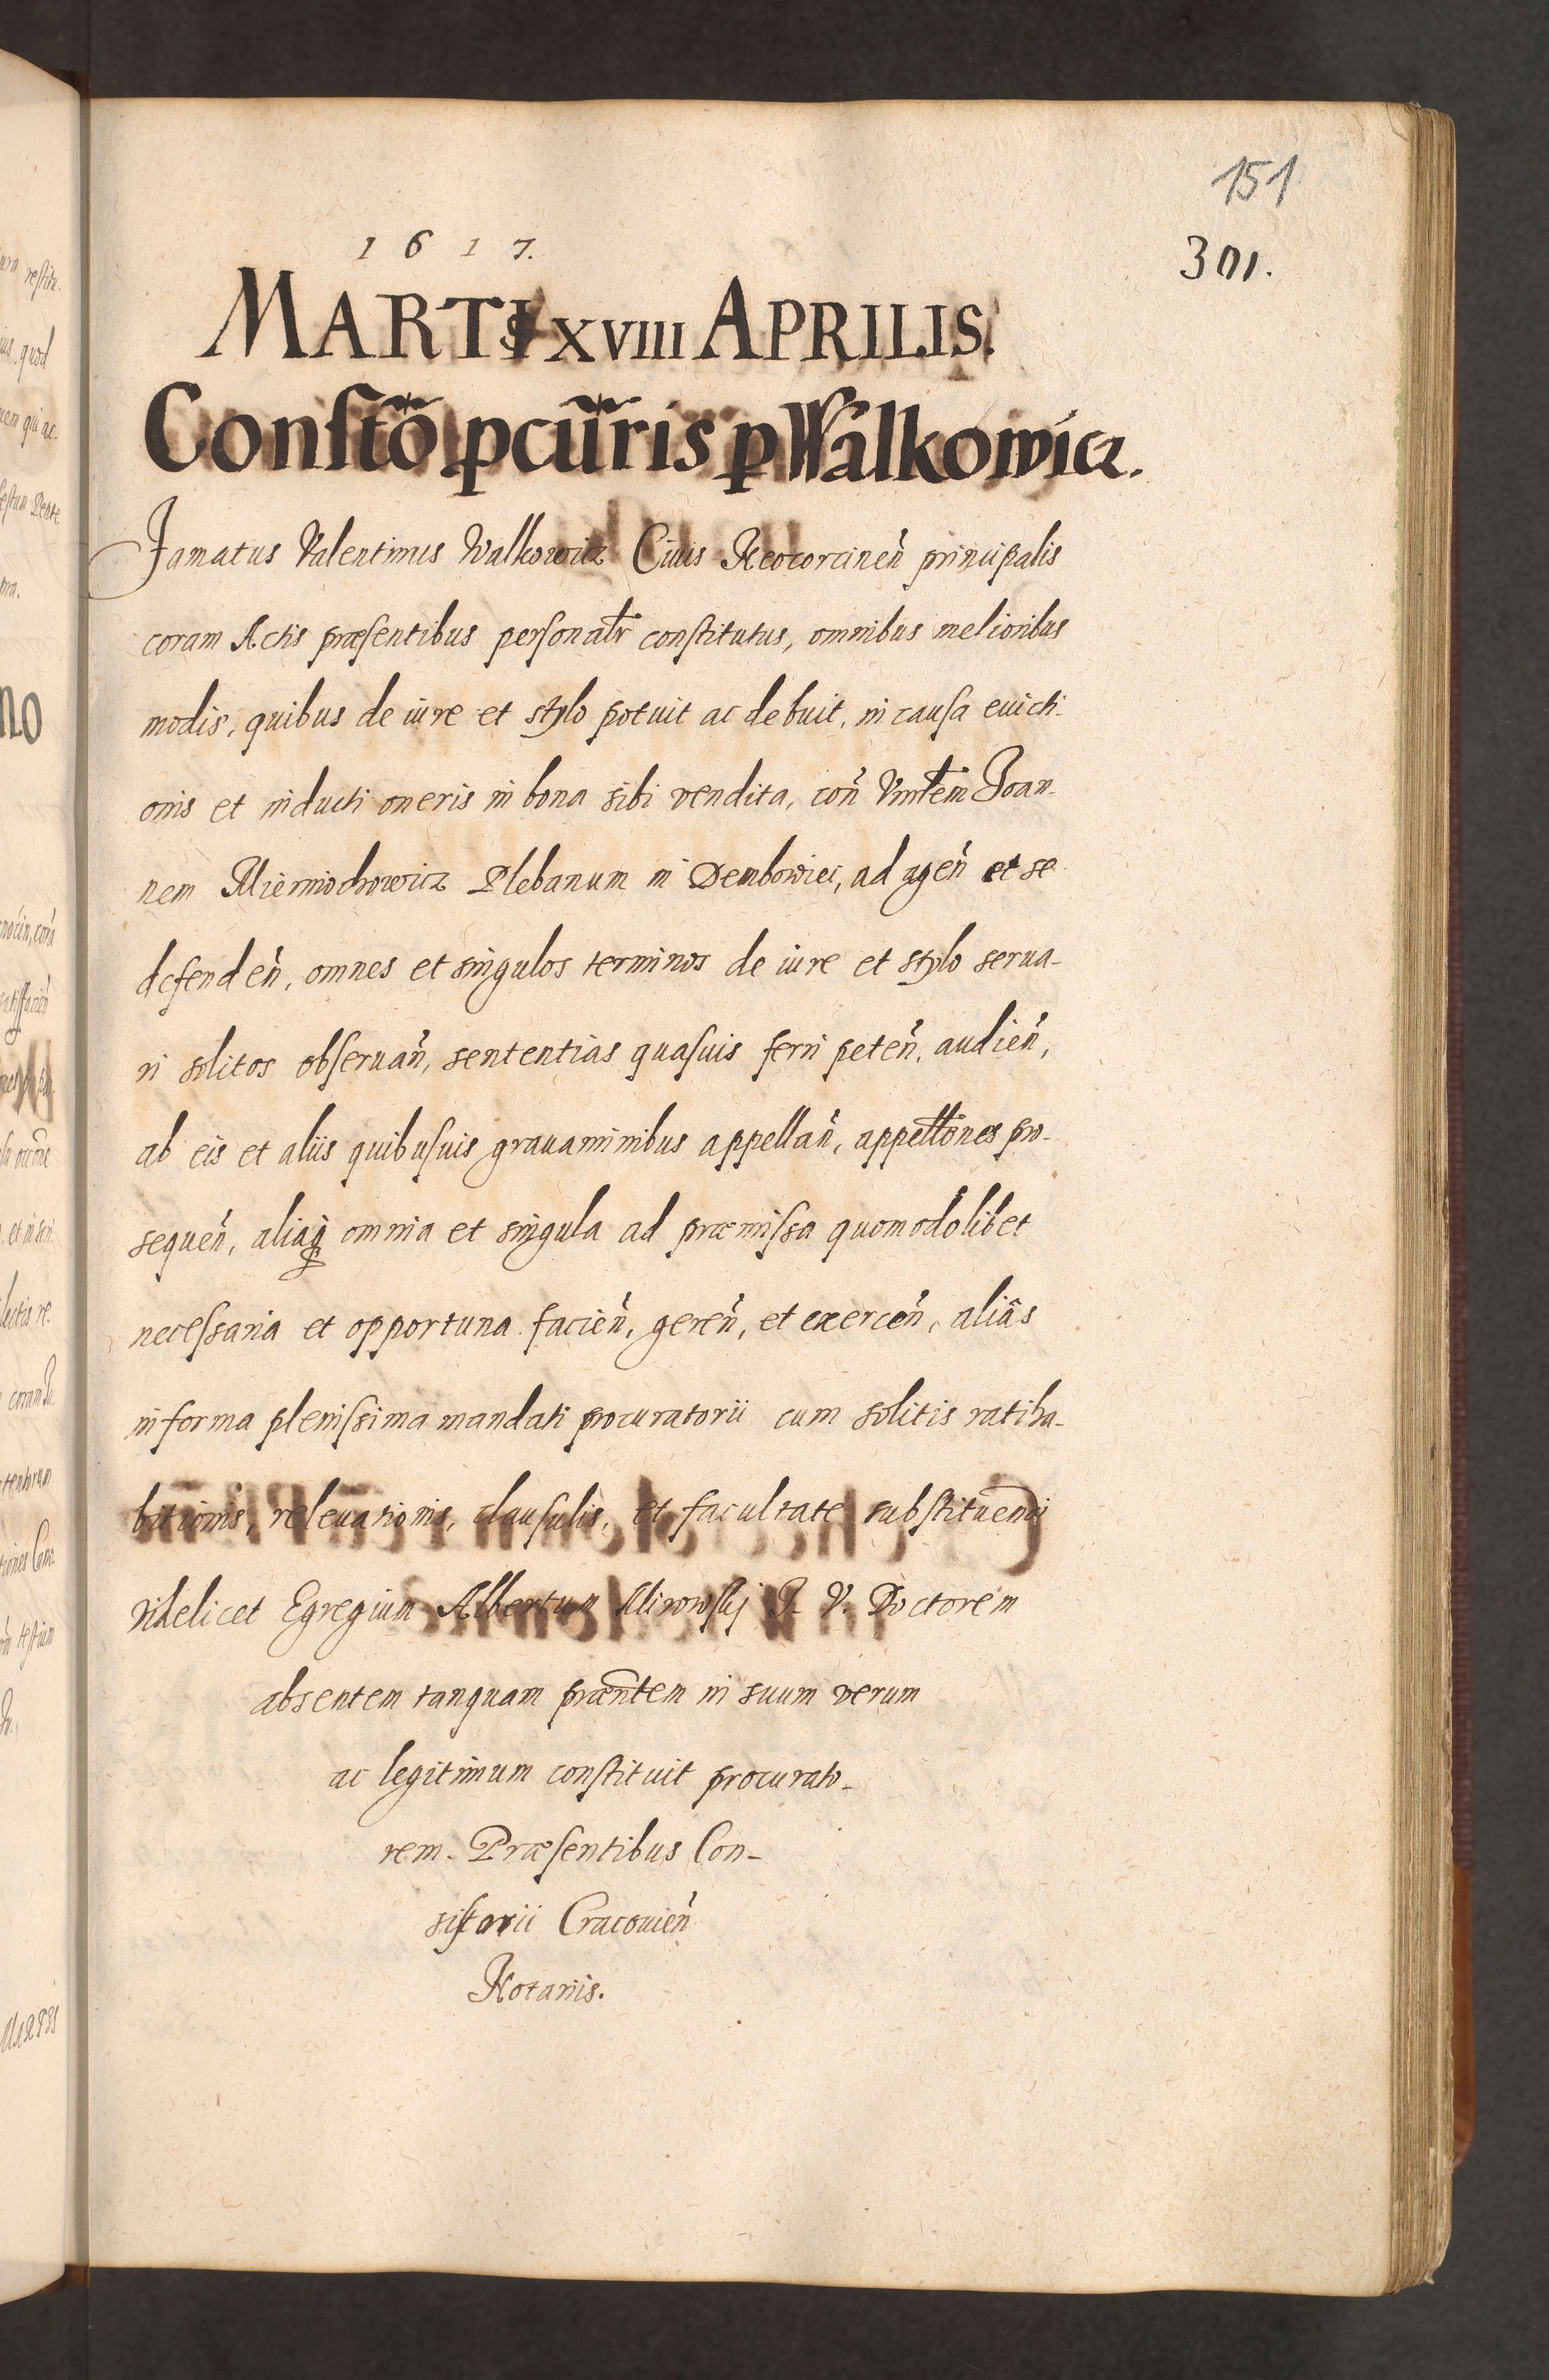 151
301.
1617.
MARTIS XVIII APRILIS.
Constō pcūris p Walkowicz.
Famatus Valentinus Walkowicz Ciuis Neocorcineñ principalis
coram Actis præsentibus personalr constitutus, omnibus melioribus
modis, quibus de iure et stylo potuit ac debuit, in causa euicti-
onis et inducti oneris in bona sibi vendita, coñ Vnrlem Joan-
nem Miermochowicz Plebanum in Dembowiec, ad ageñ et se
defendeñ, omnes et singulos terminos de iure et stylo serua-
ri solitos obseruañ, sententias quasuis ferri peteñ, audieñ,
ab eis et aliis quibusuis grauaminibus appellañ, appellōnes pro-
sequeñ, aliaq omnia et singula ad præmissa quomodolibet
necessaria et opportuna facieñ, gereñ, et exerceñ, aliâs
in forma plenissima mandati procuratorii cum solitis ratiha-
bitionis, releuationis, clausulis, et facultate substituendi
videlicet Egregium Albertum Mirowskj J. V. Doctorem
absentem tanquam præntem in suum verum
ac legitimum constituit procurato-
rem. Præsentibus Con-
sistorii Cracouieñ
Notariis.